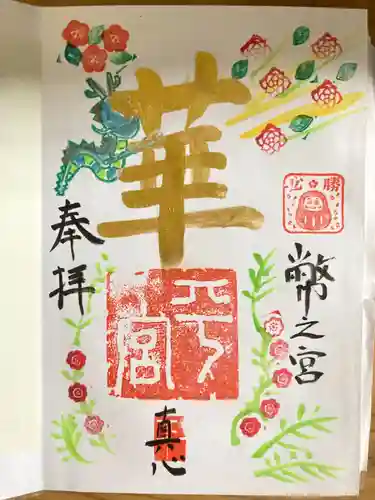 奉拝
華
必勝
幣之宮
宮
真心